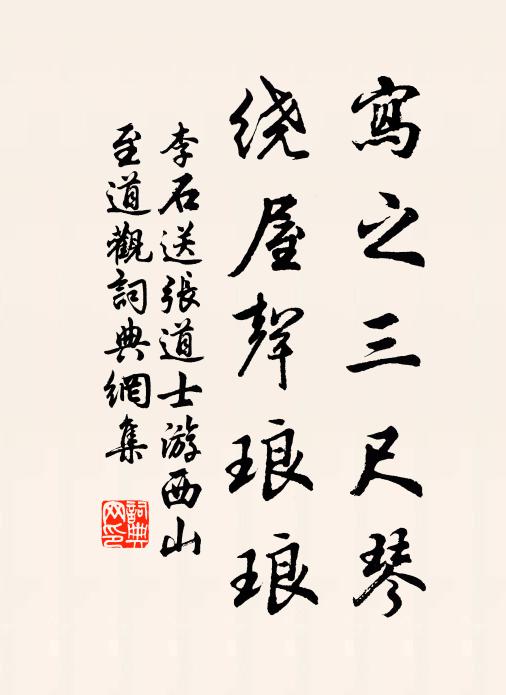 寫之三尺琴
绕屋聲琅琅
李石送張道士游西山
至道觀詞典網集
詞典
网印